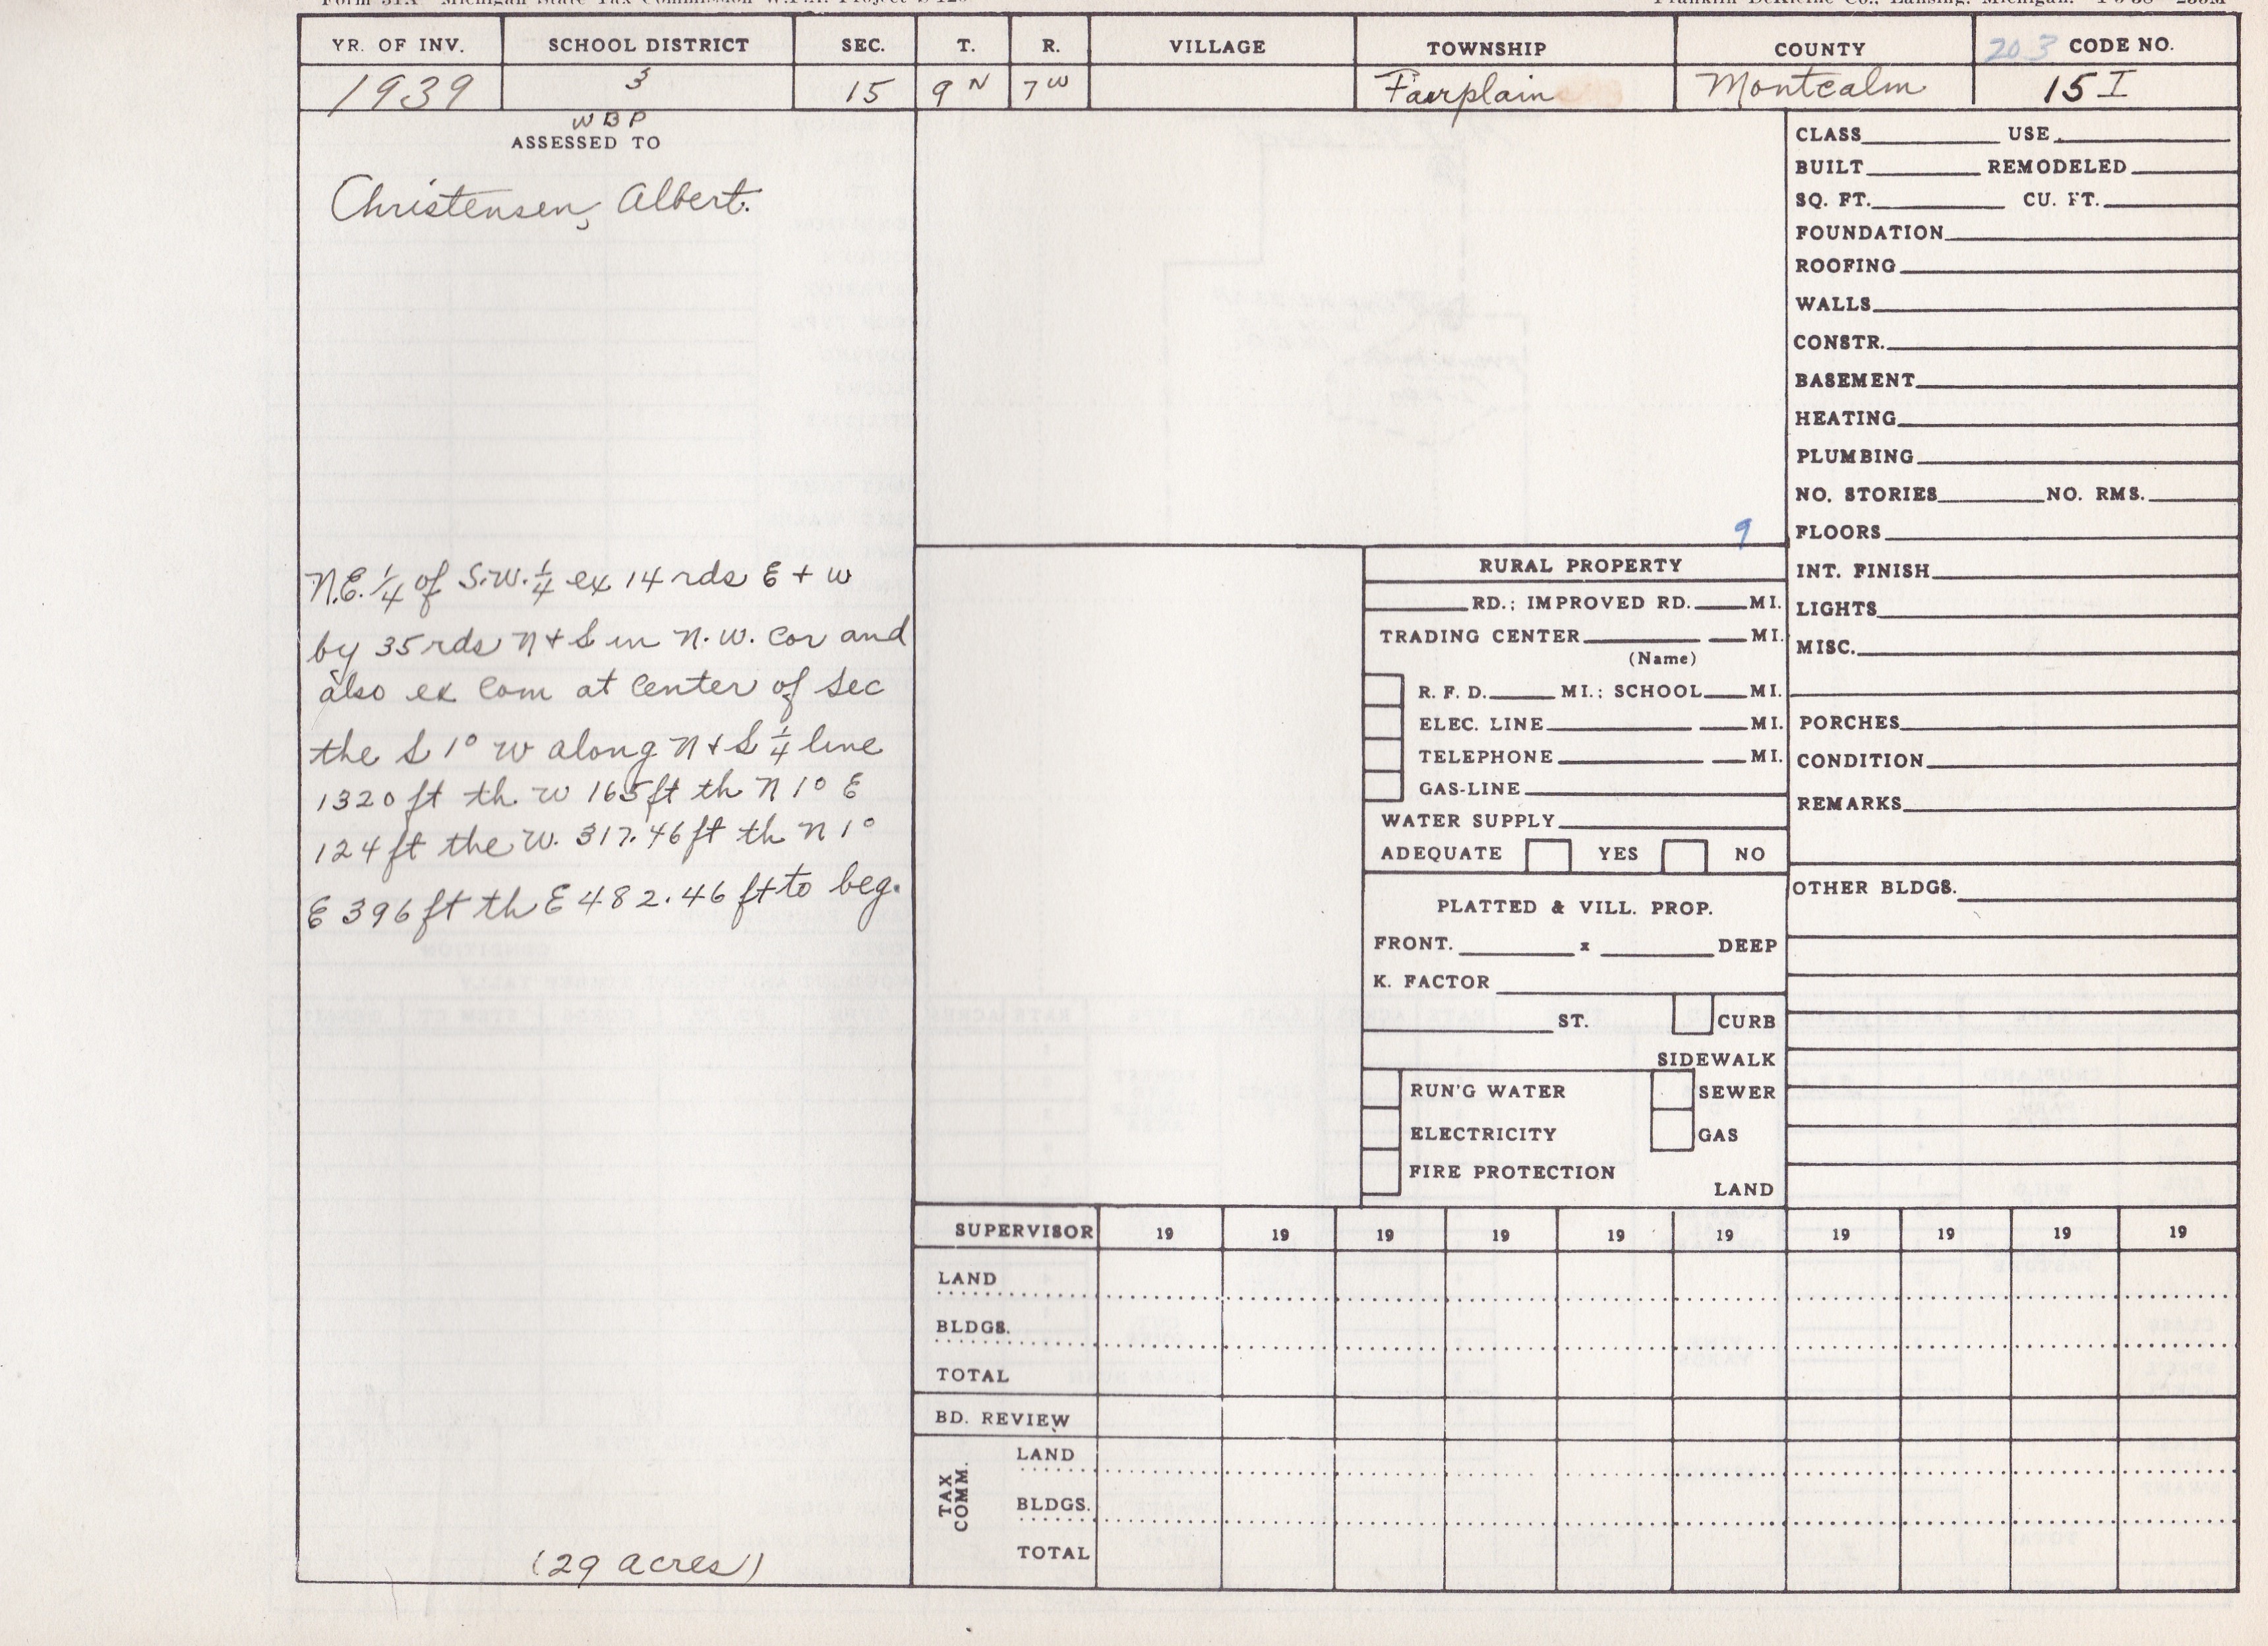 Form 51A Michigan State Tax Commission W.P.A. Project S-129
Franklin DeKleine Co., Lansing, Michigan.
YR. OF INV. SCHOOL DISTRICT SEC. T. R. VILLAGE TOWNSHIP COUNTY 203 CODE NO.
1939 3 15 9 N 7 W Fairplain Montcalm 15 I
WBP
ASSESSED TO
Christensen, Albert.
N.E. 1/4 of S.W. 1/4 ex 14 rds E + W
by 35 rds N + S in N.W. Cor and
also ex Com at Center of Sec
the S 1° W along N + S 1/4 line
1320 ft th. W 165 ft th N 1° E
124 ft the W. 317.46 ft th N 1°
E 396 ft th E 482.46 ft to beg.
(29 acres)
9
RURAL PROPERTY
RD.; IMPROVED RD. MI.
TRADING CENTER MI.
(Name)
R. F. D. MI.: SCHOOL MI.
ELEC. LINE MI.
TELEPHONE MI.
GAS-LINE
WATER SUPPLY
ADEQUATE YES NO
PLATTED & VILL. PROP.
FRONT. x DEEP
K. FACTOR
ST. CURB
SIDEWALK
RUN'G WATER SEWER
ELECTRICITY GAS
FIRE PROTECTION
LAND
CLASS USE
BUILT REMODELED
SQ. FT. CU. FT.
FOUNDATION
ROOFING
WALLS
CONSTR.
BASEMENT
HEATING
PLUMBING
NO. STORIES NO. RMS.
FLOORS
INT. FINISH
LIGHTS
MISC.
PORCHES
CONDITION
REMARKS
OTHER BLDGS.
SUPERVISOR 19 19 19 19 19 19 19 19 19 19
LAND
BLDGS.
TOTAL
BD. REVIEW
TAX COMM.
LAND
BLDGS.
TOTAL